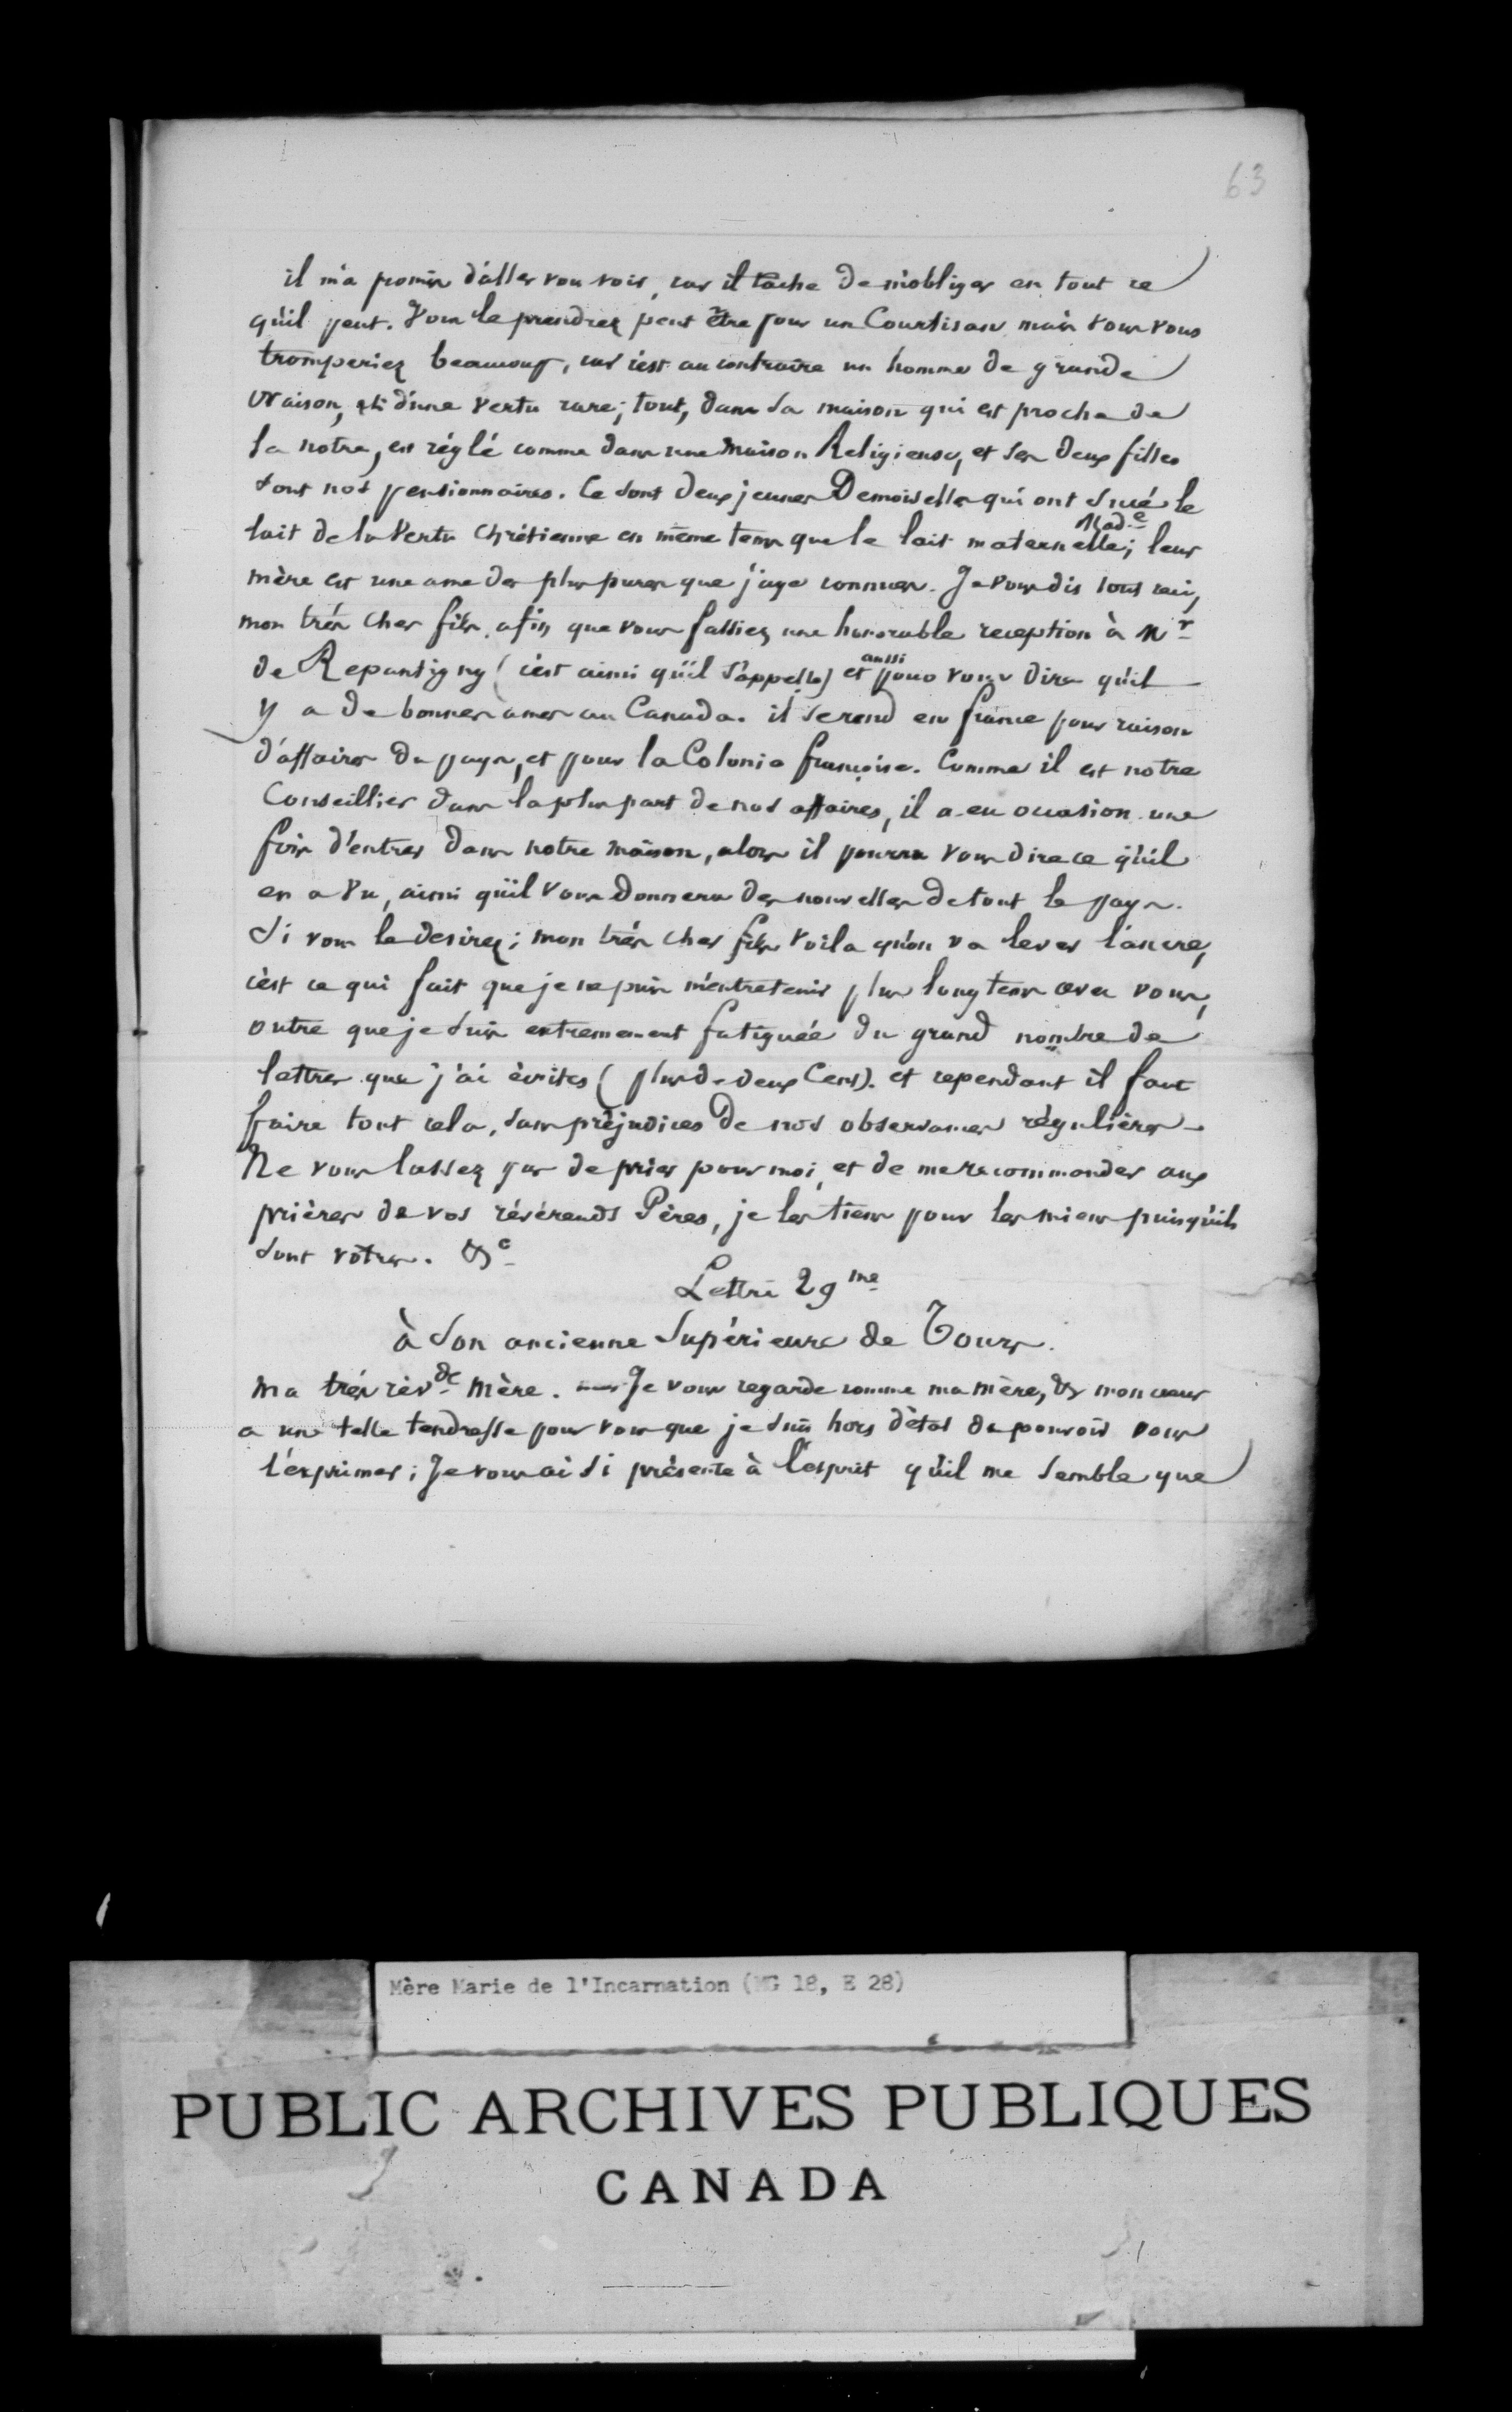 63
il m'a promis d'aller vous voir, car il tache de m'obliger en tout ce
qu'il peut. Vous le prendrez peut être pour un Courtisan mais vous vous
tromperiez beaucoup, car c'est au contraire un homme de grande
oraison, et d'une vertu rare; tout, dans sa maison qui est proche de
la notre, est réglé comme dans une maison Religieuse, et ses deux filles
sont nos pensionnaires. Ce sont deux jeunes Demoiselles qui ont sucé le
lait de la Vertu Chrétienne en même tems que le lait maternelle; Made leur
mère est une ame des plus pures que j'aye connues. Je vous dis tout ceci,
mon très cher fils, afin que vous fassiez une honorable reception à Mr
de Repantigny (c'est ainsi qu'il s'appelle) et aussi pour vous dire qu'il
y a de bonnes ames au Canada. il se rend en france pour raison
d'affaires du pays, et pour la Colonie françoise. Comme il est notre
Conseillier dans la plus part de nos affaires, il a eu occasion une
fois d'entrer dans notre maison, alors il pourra vous dire ce qu'il
en a vu, ainsi qu'il vous donnera des nouvelles de tout le pays.
Si vous le desirez; mon très cher fils voila qu'on va lever l'ancre,
c'est ce qui fait que je ne puis m'entretenir plus longtems avec vous,
outre que je suis extremement fatiguée du grand nombre de
lettres que j'ai écrites (plus de deux Cens). et cependant il faut
faire tout cela, sans préjudices de nos observances régulières -
Ne vous lassez pas de prier pour moi, et de me recommander aux
prières de vos révérends Pères, je les tiens pour les miens puisqu'ils
sont votres. &c
Lettre 29me
à Son ancienne Supérieure de Tours.
Ma très révde Mère. Je vous regarde comme ma mère, & mon coeur
a une telle tendresse pour vous que je suis hors d'état de pouvoir vous
l'exprimer; Je vous ai si présente à l'esprit qu'il me semble que
Mère Marie de l'Incarnation (MG 18, E 28)
PUBLIC ARCHIVES PUBLIQUES
CANADA